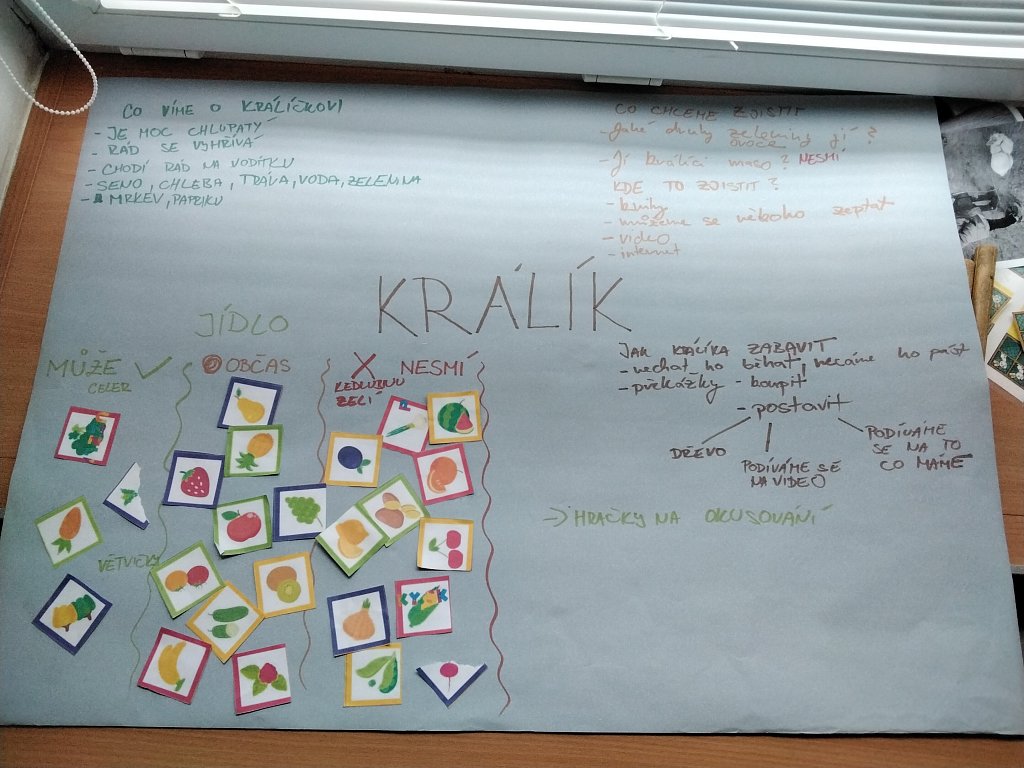 CO VÍME O KRÁLÍČKOVI
- JE MOC CHLUPATÝ
- RÁD SE VYHŘÍVÁ
- CHODÍ RÁD NA VODÍTKU
- SENO, CHLEBA, TRÁVA, VODA, ZELENINA
- MRKEV, PAPRIKU
CO CHCEME ZJISTIT
- Jaké druhy zeleniny jí ?
ovoce
- Jí králíci maso ? NESMÍ
KDE TO ZJISTIT ?
- knihy
- můžeme se někoho zeptat
- video
- internet
KRÁLÍK
JÍDLO
MŮŽE ✓
CELER
VĚTVIČKY
OBČAS
X NESMÍ
KEDLUBNU
ZELÍ
JAK KRÁLÍKA ZABAVIT
- nechat ho běhat, necáme ho pást
- překážky - koupit
- postavit
DŘEVO
PODÍVÁME SE
NA VIDEO
PODÍVÁME
SE NA TO
CO MÁME
→ HRAČKY NA OKUSOVÁNÍ